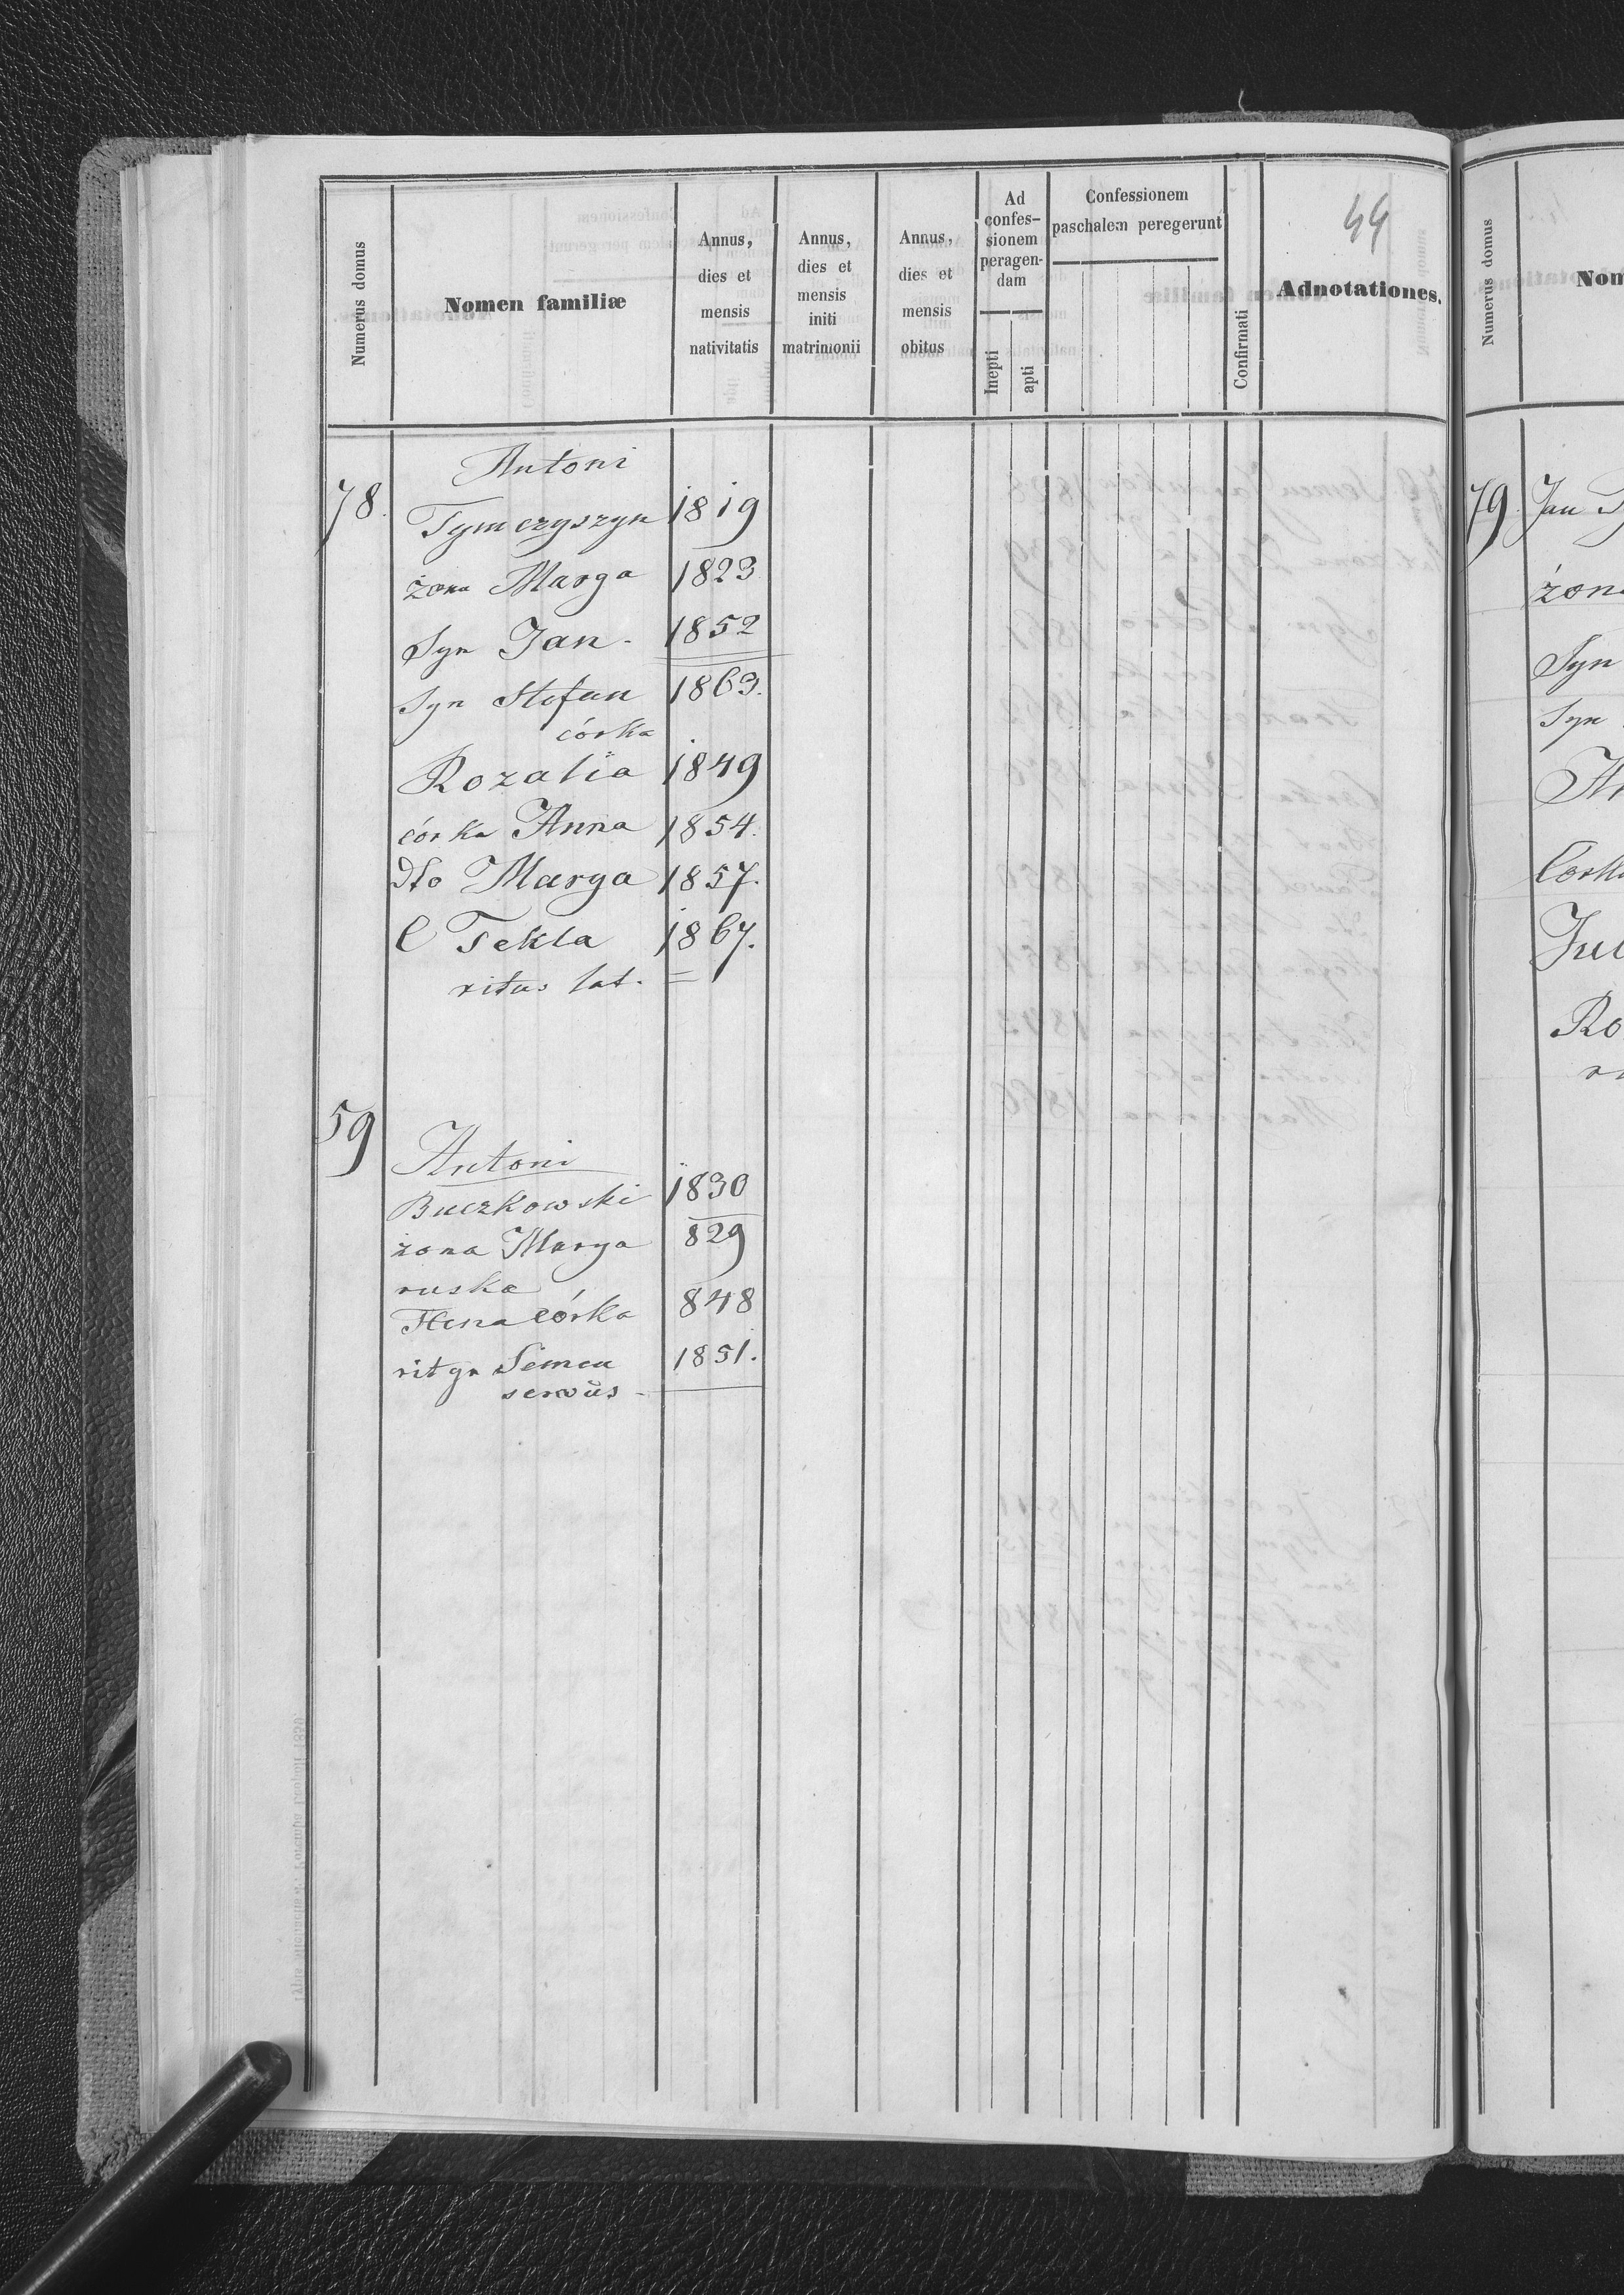 44
Numerus domus
Nomen familiæ
Annus, dies et mensis nativitatis
Annus, dies et mensis initi matrimonii
Annus, dies et mensis obitus
Ad confes- sionem peragen- dam
Inepti
apti
Confessionem paschalem peregerunt
Confirmati
Adnotationes.
Antoni
78. Tymczyszyn 1819
żona Marya 1823
Syn Jan - 1852
Syn Stefan 1863.
córka
Rozalia 1849
córka Anna 1854.
dto Marya 1857.
C Tekla 1867.
ritus lat. =
59
Antoni
Buczkowski 1830
żona Marya 829
ruska
córka 848
rit gr Semen 1851.
servus -
Numerus domus
Nom
79. Jan
żona
Syn
Syn
An
Cork
Jul
Ro